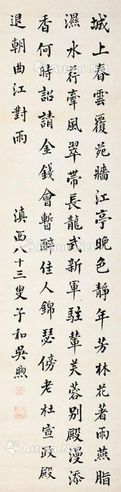 城上春雲覆苑牆江亭晚色靜年芳林花著雨燕脂
濕水荇牽風翠帶長龍武新軍駐輦芙蓉別殿漫添
香何時詔請金錢會暫醉佳人錦瑟傍老杜宣政殿
退朝曲江對雨
滇西八十三叟子和吳煦